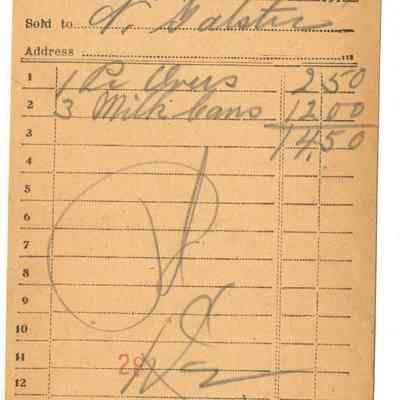 Sold to N. Galster
Address
1 1 Pr Overs 2 50
2 3 Milk Cans 12 00
3 14,50
4
5
6
7
8
9
10
11 29
12